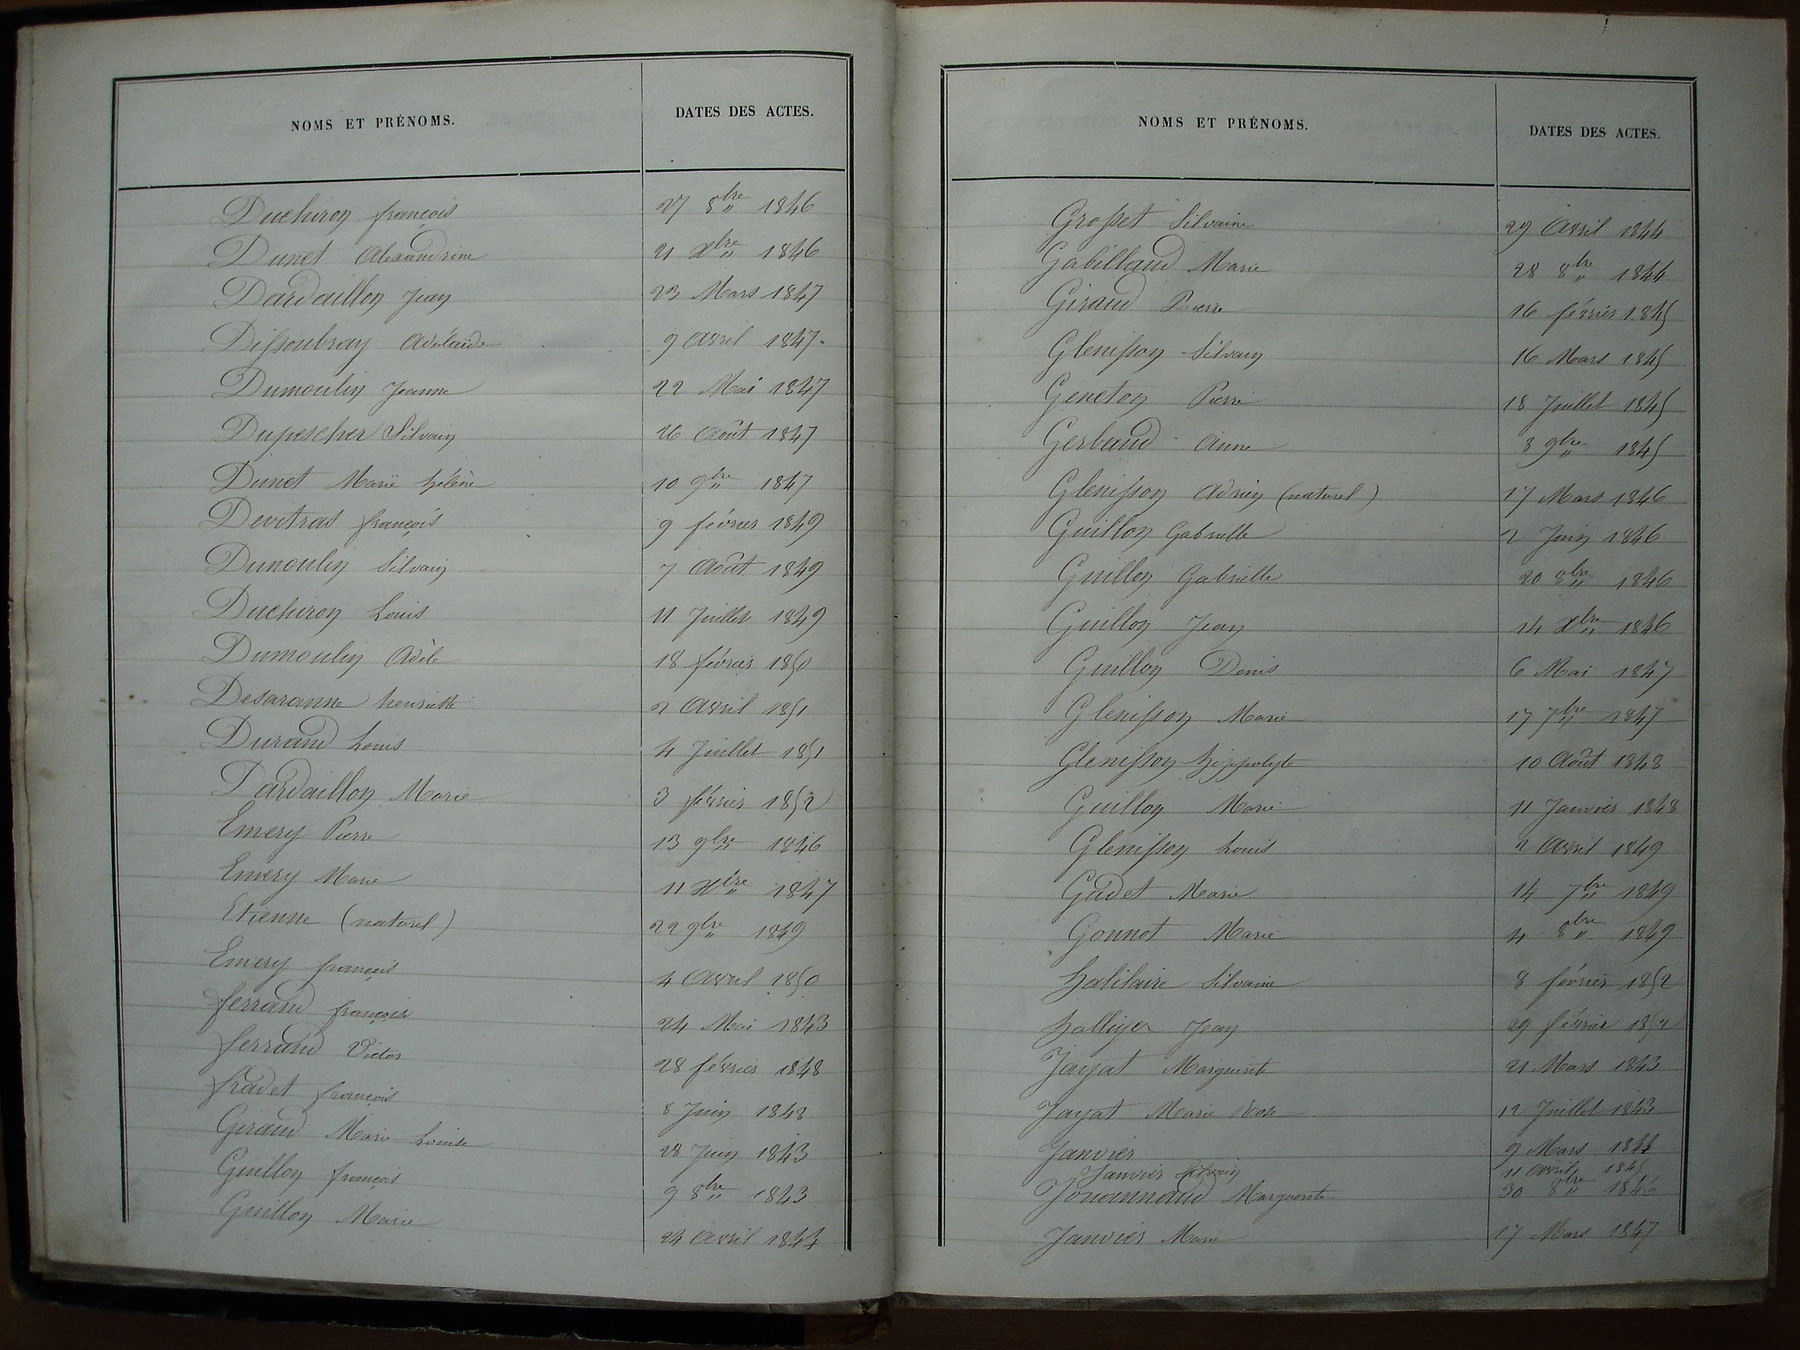 NOMS ET PRÉNOMS. DATES DES ACTES.
Duchiron françois 27 8bre 1846
Dunet Alexandrine 21 Xbre 1846
Dardaillon Jean 23 Mars 1847
Dissoubray Adélaide 9 Avril 1847.
Dumoulin Jeanne 22 Mai 1847
Dupescher Silvain 26 Août 1847
Dunet Marie hélène 10 9bre 1847
Devitras françois 9 février 1849
Dumoulin Silvain 7 Août 1849
Duchiron Louis 11 Juillet 1849
Dumoulin Adèle 18 février 1850
Desaranne henriette 2 Avril 1851
Durand Louis 4 Juillet 1851
Dardaillon Marie 3 février 1852
Emery Pierre 13 9bre 1846
Emery Marie 11 Xbre 1847
Etienne (naturel) 22 9bre 1849
Emery françois 4 Avril 1850
ferrand françois 24 Mai 1843
ferrand Victor 28 février 1848
fradet françois 8 Juin 1848
Giraud Marie Louise 28 Juin 1843
Guillon françois 9 8bre 1843
Guillon Marie 24 Avril 1844
NOMS ET PRÉNOMS. DATES DES ACTES.
Grosset Silvaine 29 Avril 1844
Gabillaud Marie 28 8bre 1844
Giraud Pierre 26 février 1845
Glenisson Silvain 16 Mars 1845
Geneton Pierre 18 Juillet 1845
Gerbaud Anne 8 9bre 1845
Glenisson Adrien (naturel) 17 Mars 1846
Guillon Gabrielle 2 Juin 1846
Guillon Gabrielle 20 8bre 1846
Guillon Jean 14 Xbre 1846
Guillon Denis 6 Mai 1847
Glenisson Marie 17 7bre 1847
Glenisson hippolyte 10 Août 1848
Guillon Marie 11 Janvier 1848
Glenisson Louis 2 Avril 1849
Gadet Marie 14 7bre 1849
Gonnet Marie 4 8bre 1849
halilaire Silvaine 8 février 1852
halliger Jean 29 février 1852
Jayat Marguerite 21 Mars 1843
Jayat Marie Rose 12 Juillet 1843
Janvier 9 Mars 1844
Janvier Silvain 11 Avril 1845
Jouannaud Marguerite 30 8bre 1846
Janvier Marie 17 Mars 1847